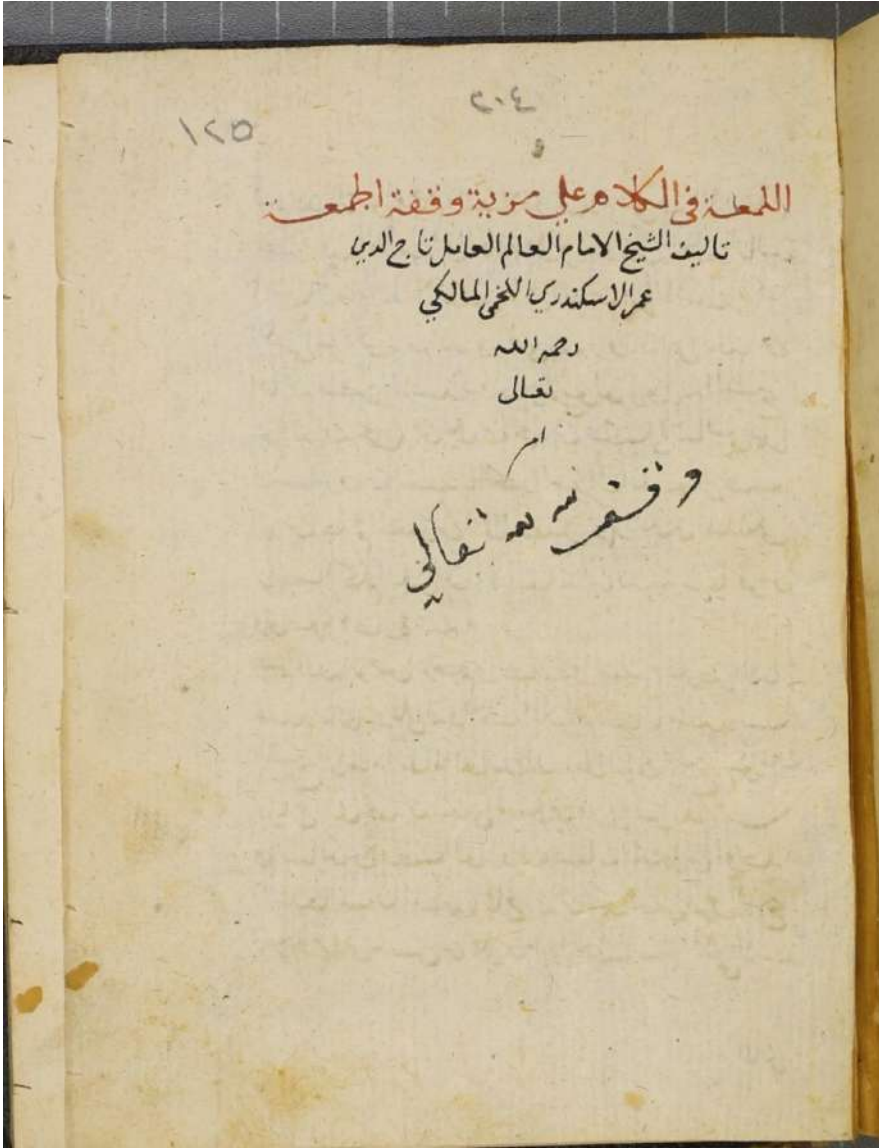 ٢٠٤
١٢٥
اللمعة في الكلام علي مزية وقفة الجمعة
تاليف الشيخ الامام العالم العامل تاج الدين
عمر الاسكندري اللخمي المالكي
رحمه الله
تعالى
وقف لله تعالى